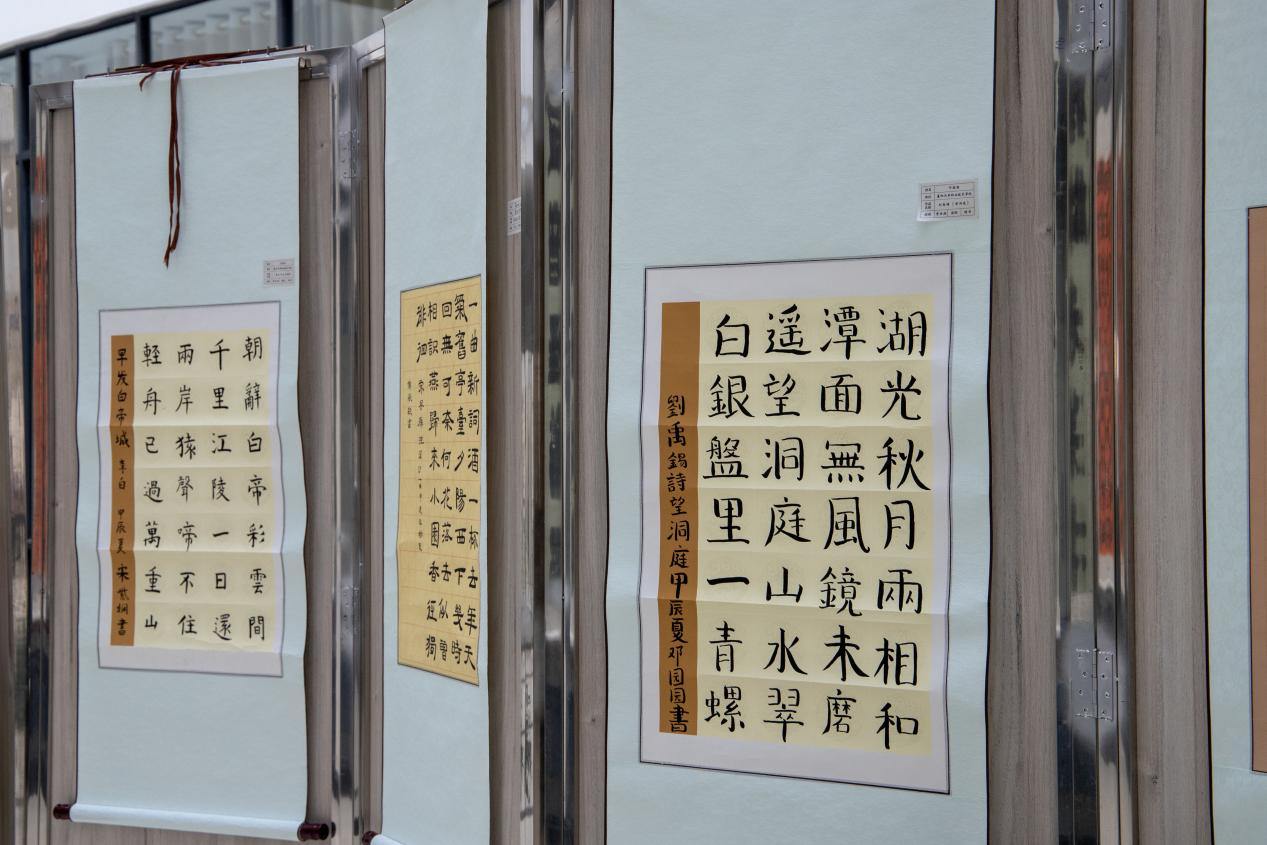 朝辭白帝彩雲間
千里江陵一日還
兩岸猿聲啼不住
軽舟已過萬重山
早发白帝城 李白 甲辰夏 宋 書
一曲新詞酒一杯去年天
氣舊亭臺夕陽西下幾時
回無可奈何花落去似曾
相識燕歸來小園香徑獨
徘徊
湖光秋月兩相和
潭面無風鏡未磨
遥望洞庭山水翠
白銀盤里一青螺
劉禹錫詩望洞庭甲辰夏邓园园書